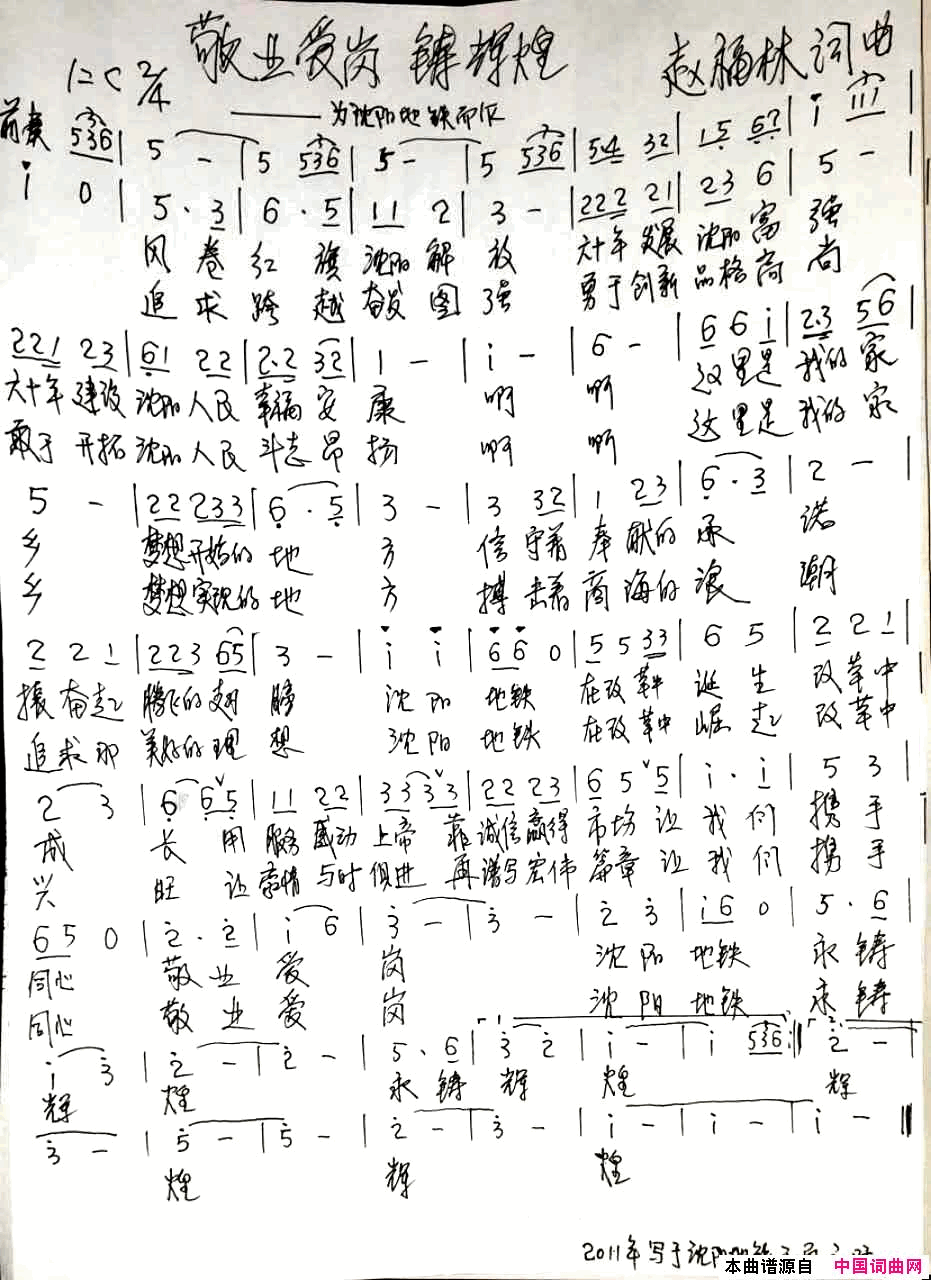 敬业爱岗 铸辉煌
1=C 2/4
赵福林 词曲
——为沈阳地铁而作
前奏 536 | 5 - | 5 536 | 5 - | 5 536 | 5·4 32 | 15 67 | i 111 |
i 0 | 5·3 | 6·5 | 11 2 | 3 - | 222 21 | 23 6 | 5 - |
风卷红旗 沈阳解放 六十年发展 沈阳富强
追求跨越 奋发图强 勇于创新 品格高尚
221 23 | 61 22 | 2·2 32 | 1 - | i - | 6 - | 6 6 i | 2·3 56 |
六十年建设 沈阳人民 幸福安康 啊 啊 这里是我的家
敢于开拓 沈阳人民 斗志昂扬 啊 啊 这里是我的家
5 - | 22 233 | 6·5 | 3 - | 3 32 | 1 23 | 6·3 | 2 - |
乡 梦想开始的地方 信守着奉献的承诺
乡 梦想实现的地方 搏击着商海的浪潮
2 2 1 | 223 65 | 3 - | i i | 66 0 | 5 5 33 | 6 5 | 2 2 1 |
振奋起 腾飞的翅膀 沈阳地铁 在改革中诞生 改革中
追求那 美好的理想 沈阳地铁 在改革中崛起 改革中
2 3 | 6 65 | 11 22 | 33 33 | 22 23 | 6 5 5 | i·i | 5 3 |
成长 用服务感动上帝 靠诚信赢得市场 让我们携手
兴旺 让豪情与时俱进 再谱写宏伟篇章 让我们携手
65 0 | 2·2 | i 6 | 3 - | 3 - | 2 3 | i6 0 | 5·6 |
同心 敬业爱岗 沈阳地铁 永铸
同心 敬业爱岗 沈阳地铁 永铸
i 3 | 2 - | 2 - | 5·6 | 3 2 | i - | i 536 :|| 2 - |
辉煌 永铸辉煌 辉
3 - | 5 - | 5 - | 2 - | 3 - | i - | i - | i - ||
煌 辉 煌
2011年写于沈阳
本曲谱源自 中国词曲网